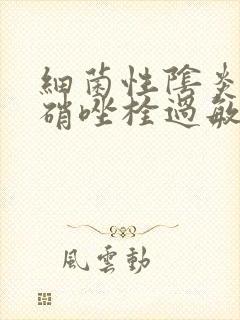 細菌性陰炎
硝唑栓過敏
風雲動